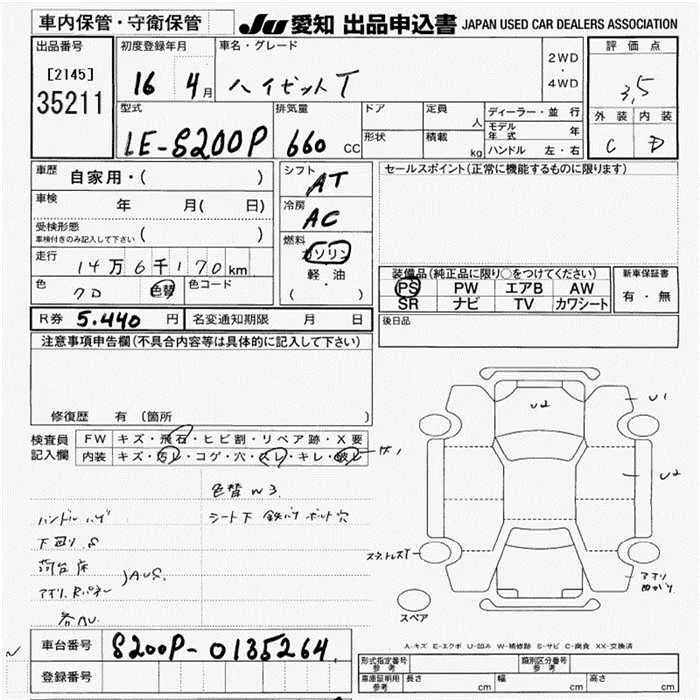 車内保管・守衛保管
JU 愛知 出品申込書 JAPAN USED CAR DEALERS ASSOCIATION
出品番号
[2145]
35211
初度登録年月
16 4月
車名・グレード
ハイゼットT
2WD
・
4WD
評価点
3.5
外装 内装
C D
型式
LE-S200P
排気量
660 CC
ドア
形状
定員 人
積載 kg
ディーラー・並行
モデル年式 年
ハンドル 左・右
車歴 自家用・( )
車検 年 月( 日)
受検形態
車検付きのみ記入して下さい ( )
走行 14万6千170km
色 クロ 色替 色コード
シフト AT
冷房 AC
燃料
ガソリン
軽・油
( ・ )
セールスポイント(正常に機能するものに限ります)
装備品(純正品に限り○をつけてください)
PS PW エアB AW
SR ナビ TV カワシート
新車保証書
有・無
R券 5.440 円 名変通知期限 月 日
後日品
注意事項申告欄(不具合内容等は具体的に記入して下さい)
修復歴 有(箇所 )
検査員記入欄
FW キズ・飛石・ヒビ割・リペア跡・X要
内装 キズ・汚レ・コゲ・穴・スレ・キレ・破レ
色替W3.
ハンドルハゲ
シート下 鉄バリ ボルト穴
下回りS
荷台床
アオリ, Rパネル
各AU.
U2
U1
U2
スペア
A-キズ E-エクボ U-凹み W-補修跡 S-サビ C-腐食 XX-交換済
車台番号 S200P-0135264
登録番号
型式指定番号 参考
類別区分番号 参考
車庫証明用 参考 長さ cm 幅 cm 高さ cm